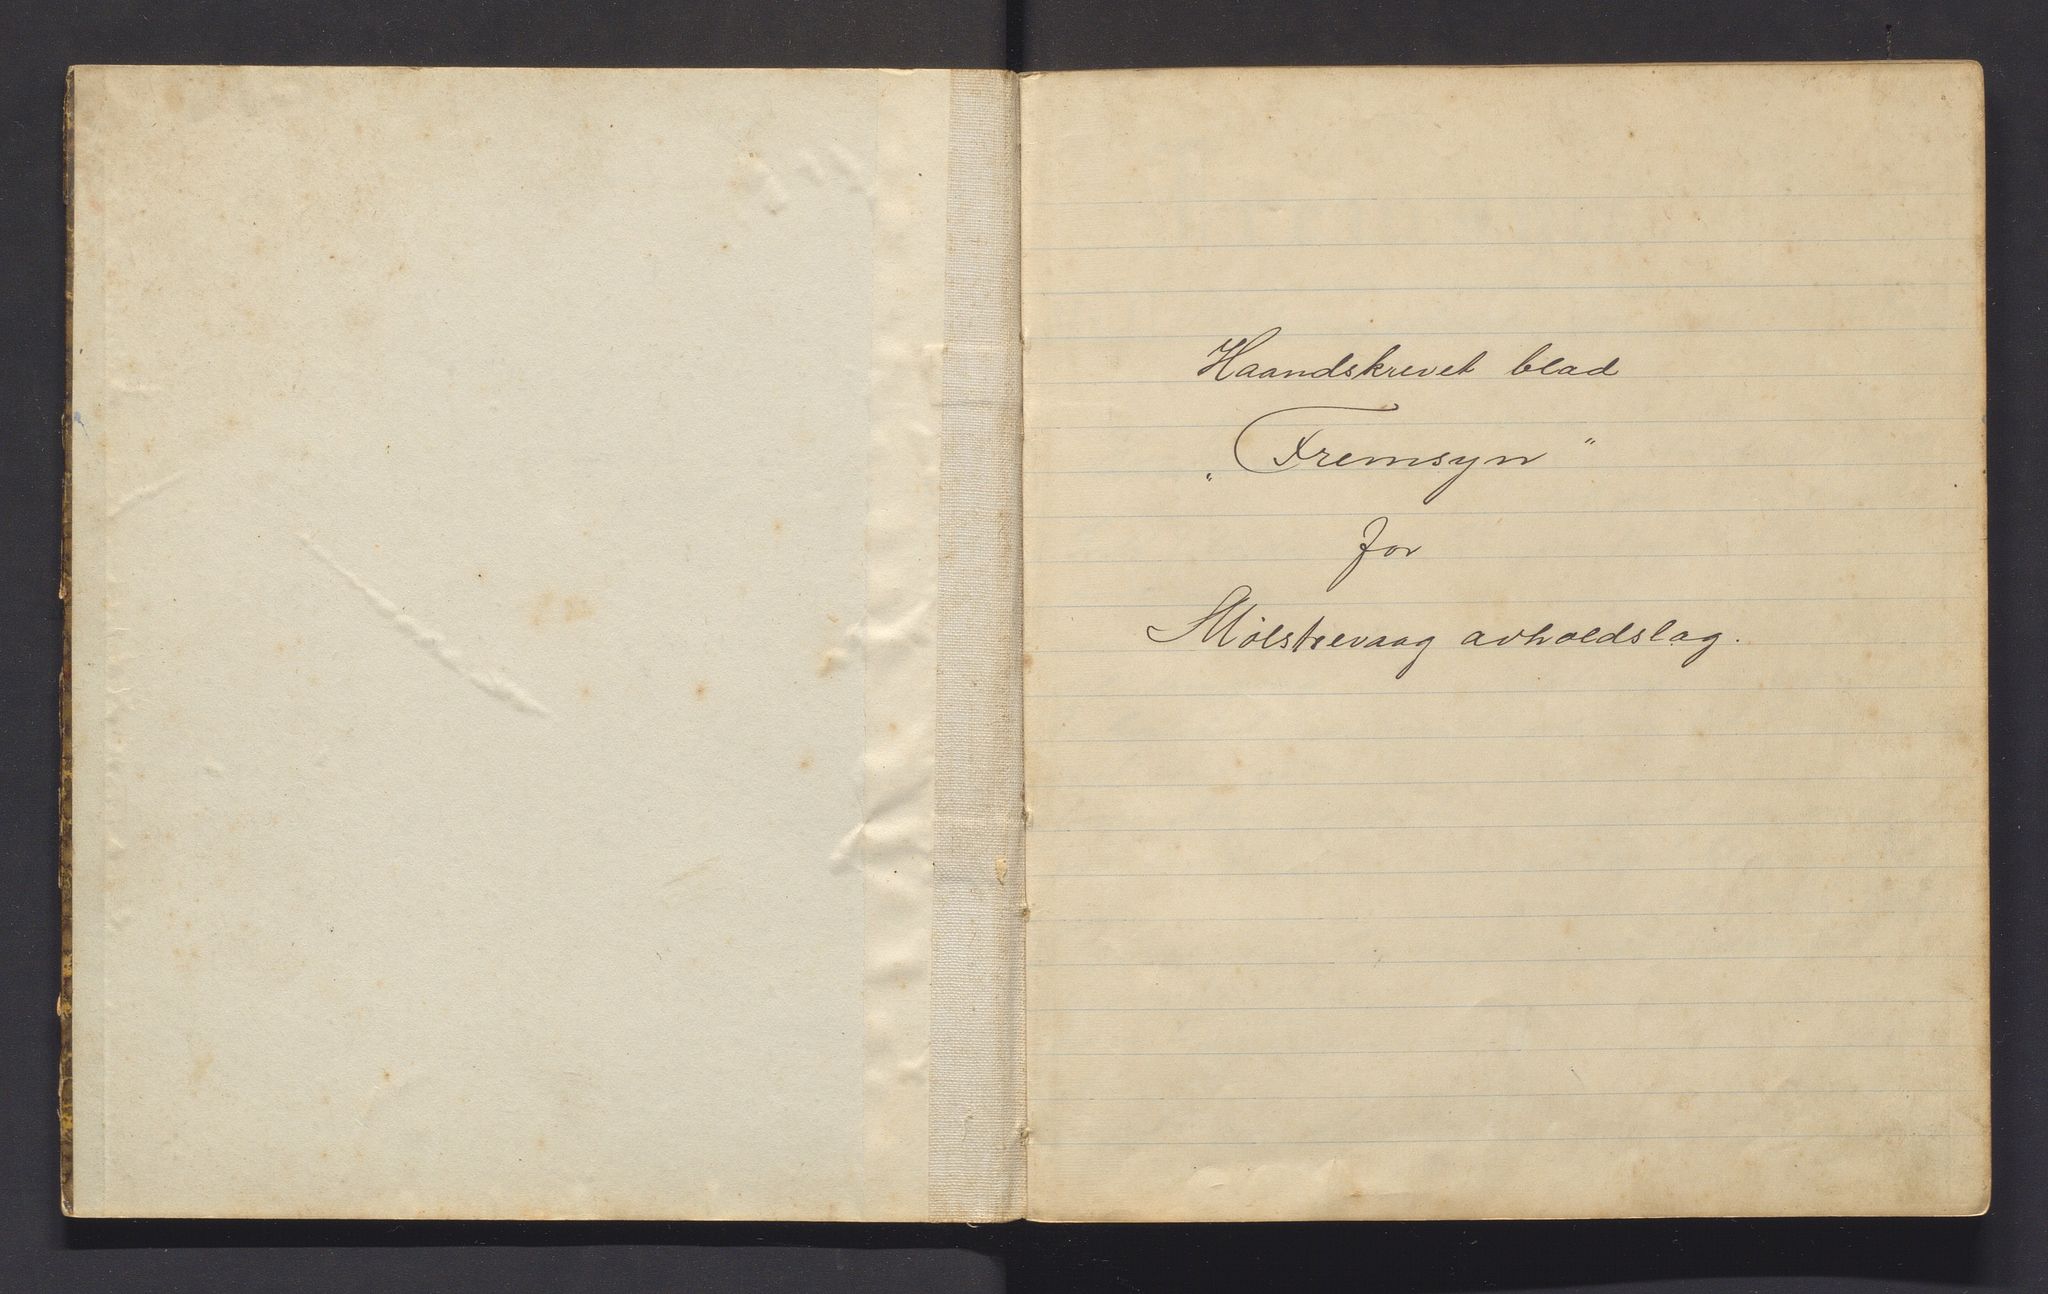 Haandskrevet blad
„Fremsyn“
for
Mölstrevaag avholdslag.